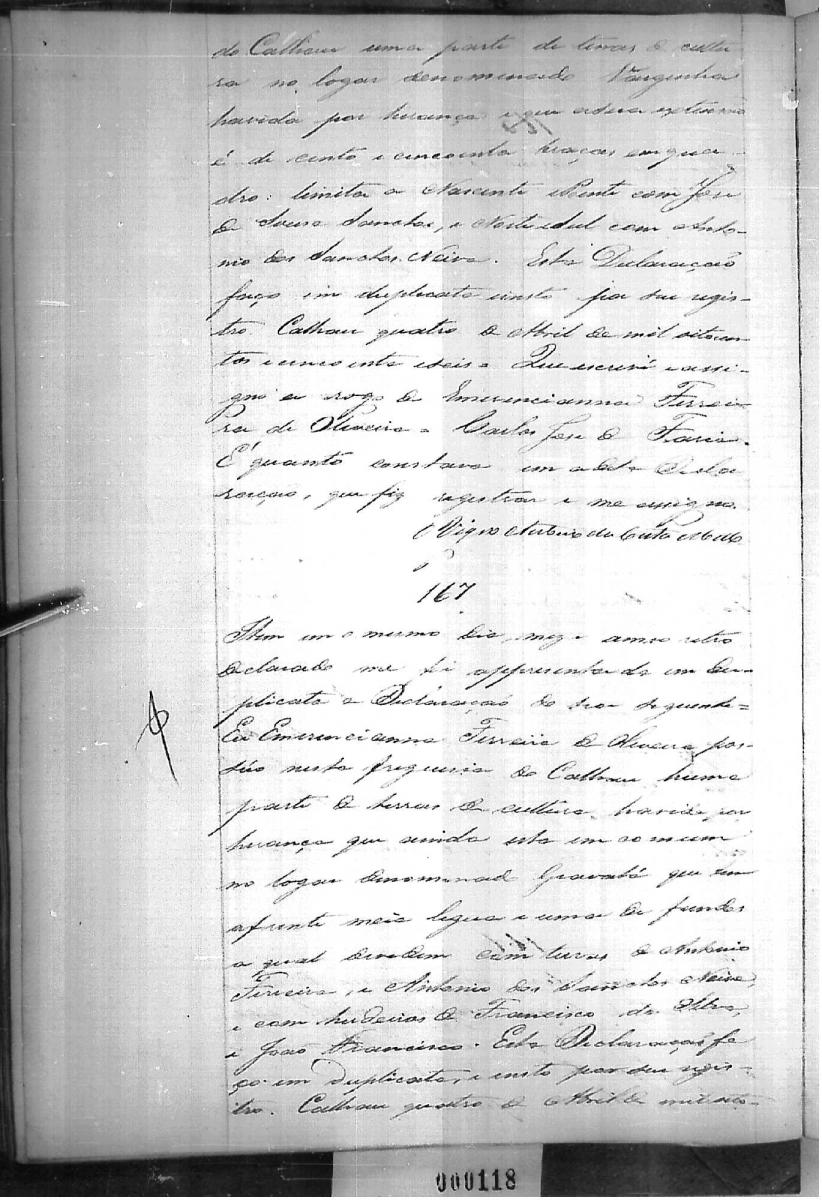 do Calhau uma parte de terras de cultu-
ra no logar denominado Varginha
havida por herança e que a sua extenção
é de cento e cincoenta braças em qua-
dro: limita a Nascente e Poente com Jose
de Sousa Sanctos, e Norte e Sul com Anto-
nio dos Sanctos Neiva. Esta Declaração
faço em duplicata e insto por seu regis-
tro. Calhau quatro de Abril de mil oitocen-
tos e cincoenta e seis = Que escrevi e assi-
gnei a rogo de Emerencianna Ferrei-
ra de Oliveira = Carlos Jose de Faria.
É quanto constava em a dita Decla
ração, que fiz registrar e me assigno.
O Vigro
167
Item em o mesmo dia, mez e anno retro
declarado me foi appresentada em du-
plicata a Declaração do theor seguinte =
Eu Emerencianna Ferreira de Oliveira pos-
súo nesta freguesia do Calhau huma
parte de terras de cultura havida por
herança que ainda esta em comum
no logar denominad Gravatá que tem
a frente meia legua e uma de fundos
a qual devedem com terras de Antonio
Ferreira, e Antonio dos Sanctos Neiva,
e com herdeiros de Francisco da Silva,
e João Francisco. Esta Declaração fa
ço em duplicata, e insto por seu regis-
tro. Calhau quatro de Abril de mil oito-
000118